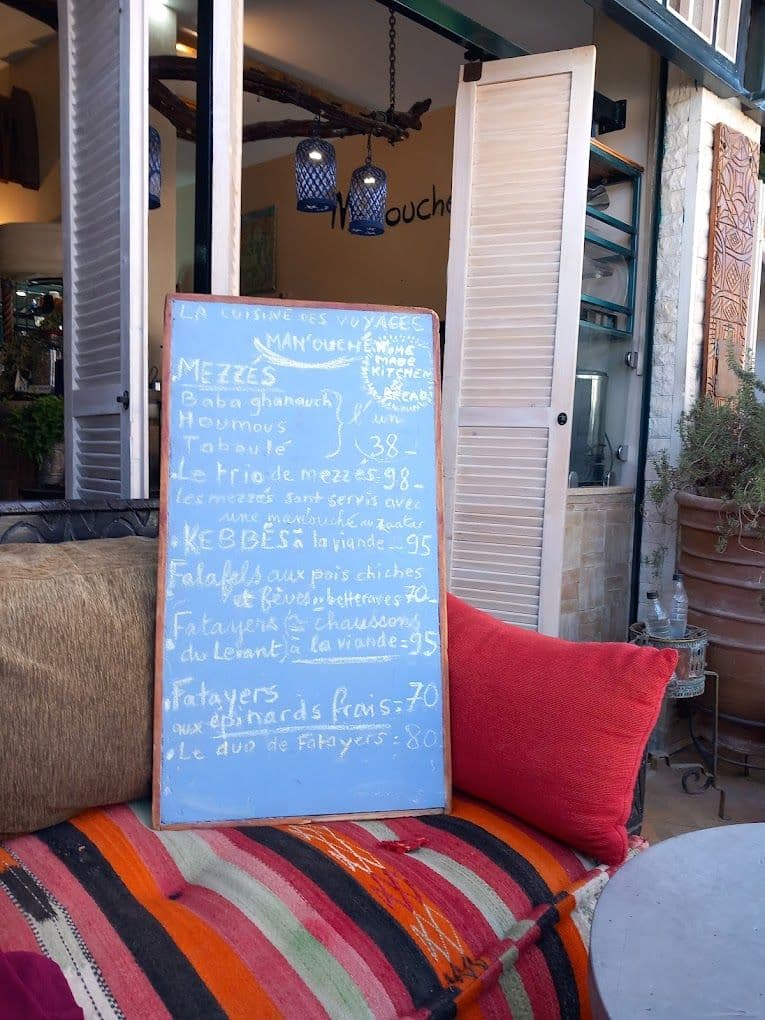 Man'ouché
LA CUISINE DES VOYAGES
MAN'OUCHÉ
HOME
MADE
KITCHEN
&
BREAD
MEZZÉS
Baba ghanouch
Houmous
Taboulé
l'un
38-
Le trio de mezzés 98-
Les mezzés sont servis avec
une man'ouché au zaatar
KEBBÉS à la viande - 95
Falafels aux pois chiches
et fèves ou betteraves 70-
Fatayers = chaussons
du Levant, à la viande = 95
Fatayers = 70
aux épinards frais
Le duo de Fatayers = 80